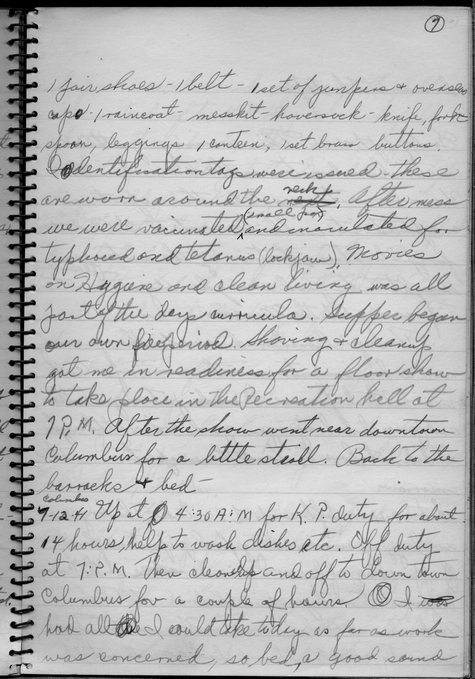 7
1 pair shoes - 1 belt - 1 set of jumpers & overseas
cap - 1 raincoat - messkit - haversack - knife, fork
spoon, leggings 1 canteen, 1 set brass buttons.
Identification tags were issued - these
are worn around the neck. After mess
we were vaccinated (small pox) and innoculated for
typhoid and tetanus (lockjaw). Movies
on Hygiene and clean living was all
part of the days curricula. Supper began
our own free period. Shaving & cleanup
got me in readiness for a floor show
to take place in the Recreation hall at
7 P.M. After the show went near downtown
Columbus for a little stroll. Back to the
barracks & bed -
Columbus
7-12-41 Up at 4:30 A:M for K.P. duty for about
14 hours, help to wash dishes etc. Off duty
at 7:P.M. Then cleanup and off to down town
Columbus for a couple of hours. I
had all I could take today as far as work
was concerned, so bed, a good sound